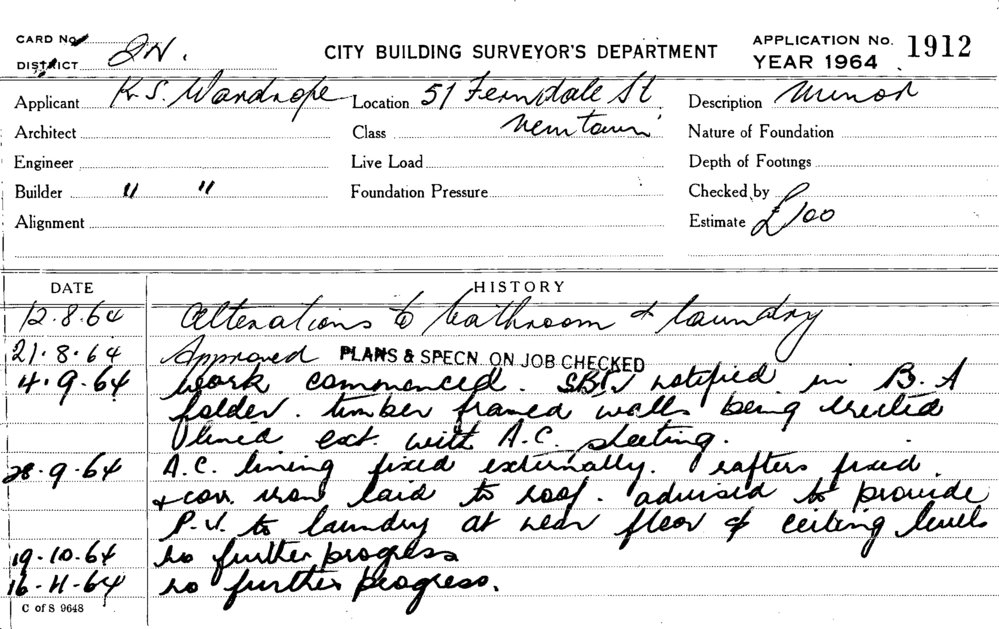 CARD No.
DISTRICT 2N.
CITY BUILDING SURVEYOR'S DEPARTMENT
APPLICATION No. 1912
YEAR 1964
Applicant K. S. Wardrope Location 51 Ferndale St Description Minor
Architect Class Newtown Nature of Foundation
Engineer Live Load Depth of Footings
Builder " " Foundation Pressure Checked by
Alignment Estimate £100
DATE HISTORY
12.8.64 Alterations to bathroom & laundry
21.8.64 Approved PLANS & SPECN. ON JOB CHECKED
4.9.64 Work commenced. notified in B.A
folder. timber framed walls being erected
lined ext. with A.C. sheeting.
28.9.64 A.C. lining fixed externally. rafters fixed.
& corr. iron laid to roof. advised to provide
P.V. to laundry at near floor & ceiling levels
19.10.64 no further progress
16.11.64 no further progress.
C of S 9648